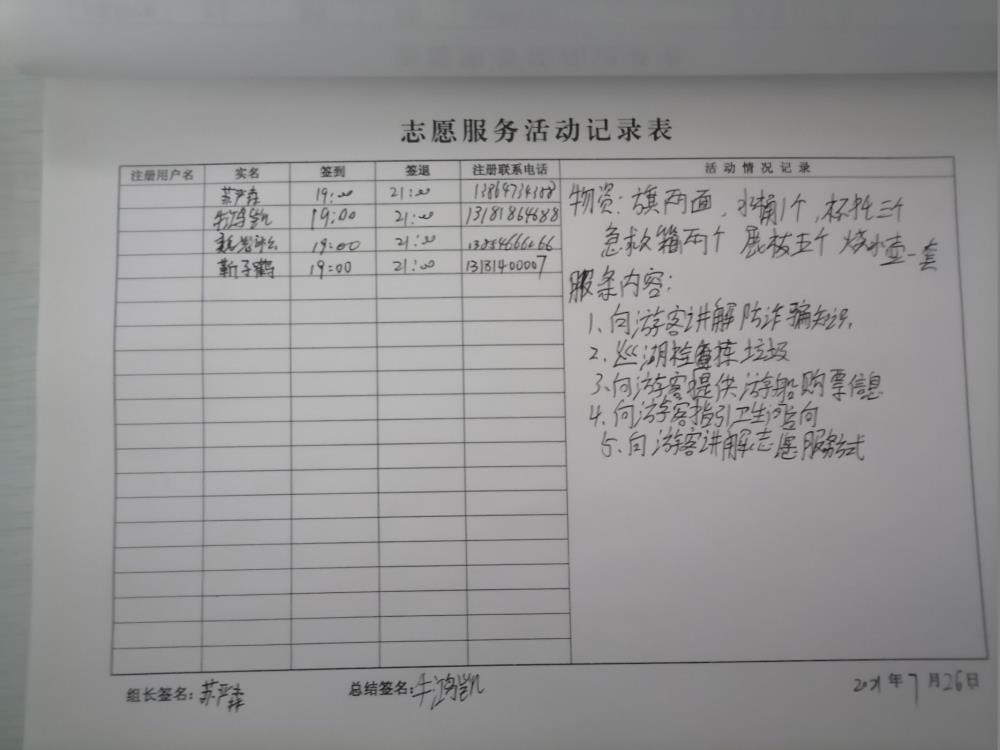 志愿服务活动记录表
注册用户名 实名 签到 签退 注册联系电话 活动情况记录
苏严森 19:00 21:00 13864734308
牛鸿凯 19:00 21:00 13181864688
19:00 21:00
靳子鹤 19:00 21:00 13181400007
物资：旗两面，水桶1个，杯托三个
急救箱两个 展板五个 烧水壶一套
服务内容：
1、向游客讲解防诈骗知识，
2、巡湖检查捡垃圾
3、向游客提供游船购票信息
4、向游客指引卫生间方向
5、向游客讲解志愿服务方式
组长签名：苏严森 总结签名：牛鸿凯 2021年7月26日